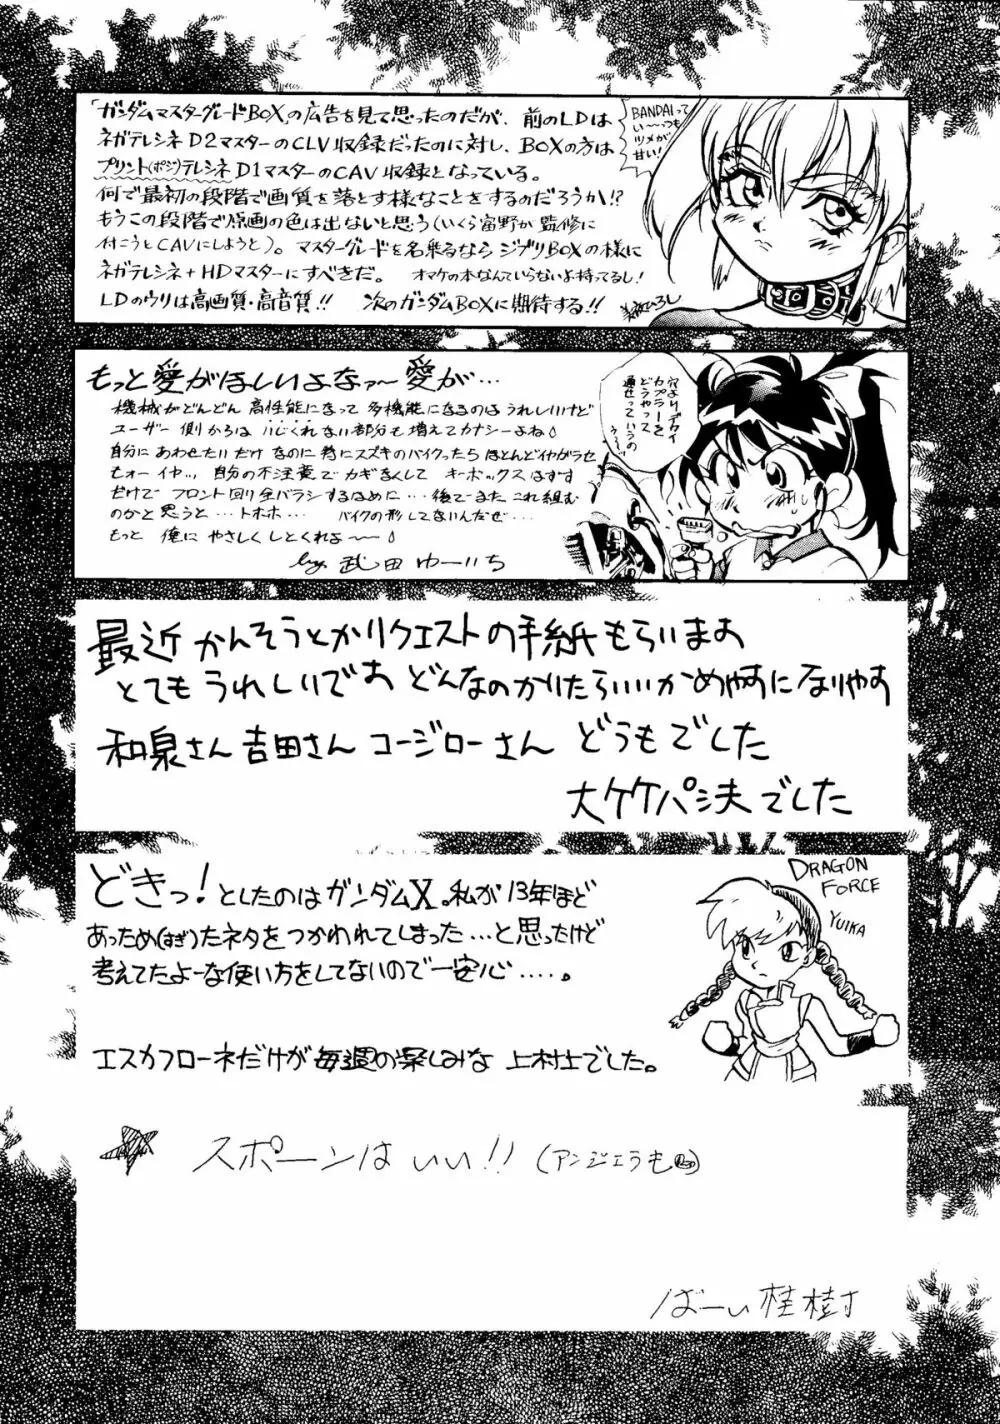 「ガンダムマスターグレードBOX」の広告を見て思ったのだが、前のLDは
ネガテレシネD2マスターのCLV収録だったのに対し、BOXの方は
プリント(ポジ)テレシネD1マスターのCAV収録となっている。
何で最初の段階で画質を落とす様なことをするのだろうか!?
もうこの段階で原画の色は出ないと思う(いくら富野が監修に
付こうとCAVにしようと)。マスターグレードを名乗るならジブリBOXの様に
ネガテレシネ+HDマスターにすべきだ。 オマケの本なんていらないよ持ってるし!
LDのウリは高画質・高音質!! 次のガンダムBOXに期待する!!
BANDAIって
い〜〜つも
ツメが
甘い!
もっと愛がほしいよなァ〜愛が…
機械がどんどん高性能になって多機能になるのはうれしいけど
ユーザー側からはいじくれない部分も増えてカナシーよね
自分にあわせたいだけなのに 特にスズキのバイクったらほとんどイヤがラセ
もォーイヤッ、自分の不注意でカギなくしてキーボックスはずす
だけでフロント回り全バラシするはめに…後でまたこれ組む
のかと思うと…トホホ… バイクの形してないんだぜ…
もっと俺にやさしくしとくれよ〜〜
by 武田ゆーいち
穴よりデカイ
カプラーを
どうやって
通せっていうの
最近かんそうとかリクエストの手紙もらいまお
とてもうれしいでお どんなのかいたらいいかめやすになりやす
和泉さん 吉田さん コージローさん どうもでした
大ケケパシ夫でした
どきっ!としたのはガンダムX。私が13年ほど
あっため(すぎ)たネタをつかわれてしまった…と思ったけど
考えてたよーな使い方をしてないので一安心……。
エスカフローネだけが毎週の楽しみな 上村士でした。
DRAGON
FORCE
YUIKA
スポーンはいい!!(アンジェラも)
ばーい桂樹